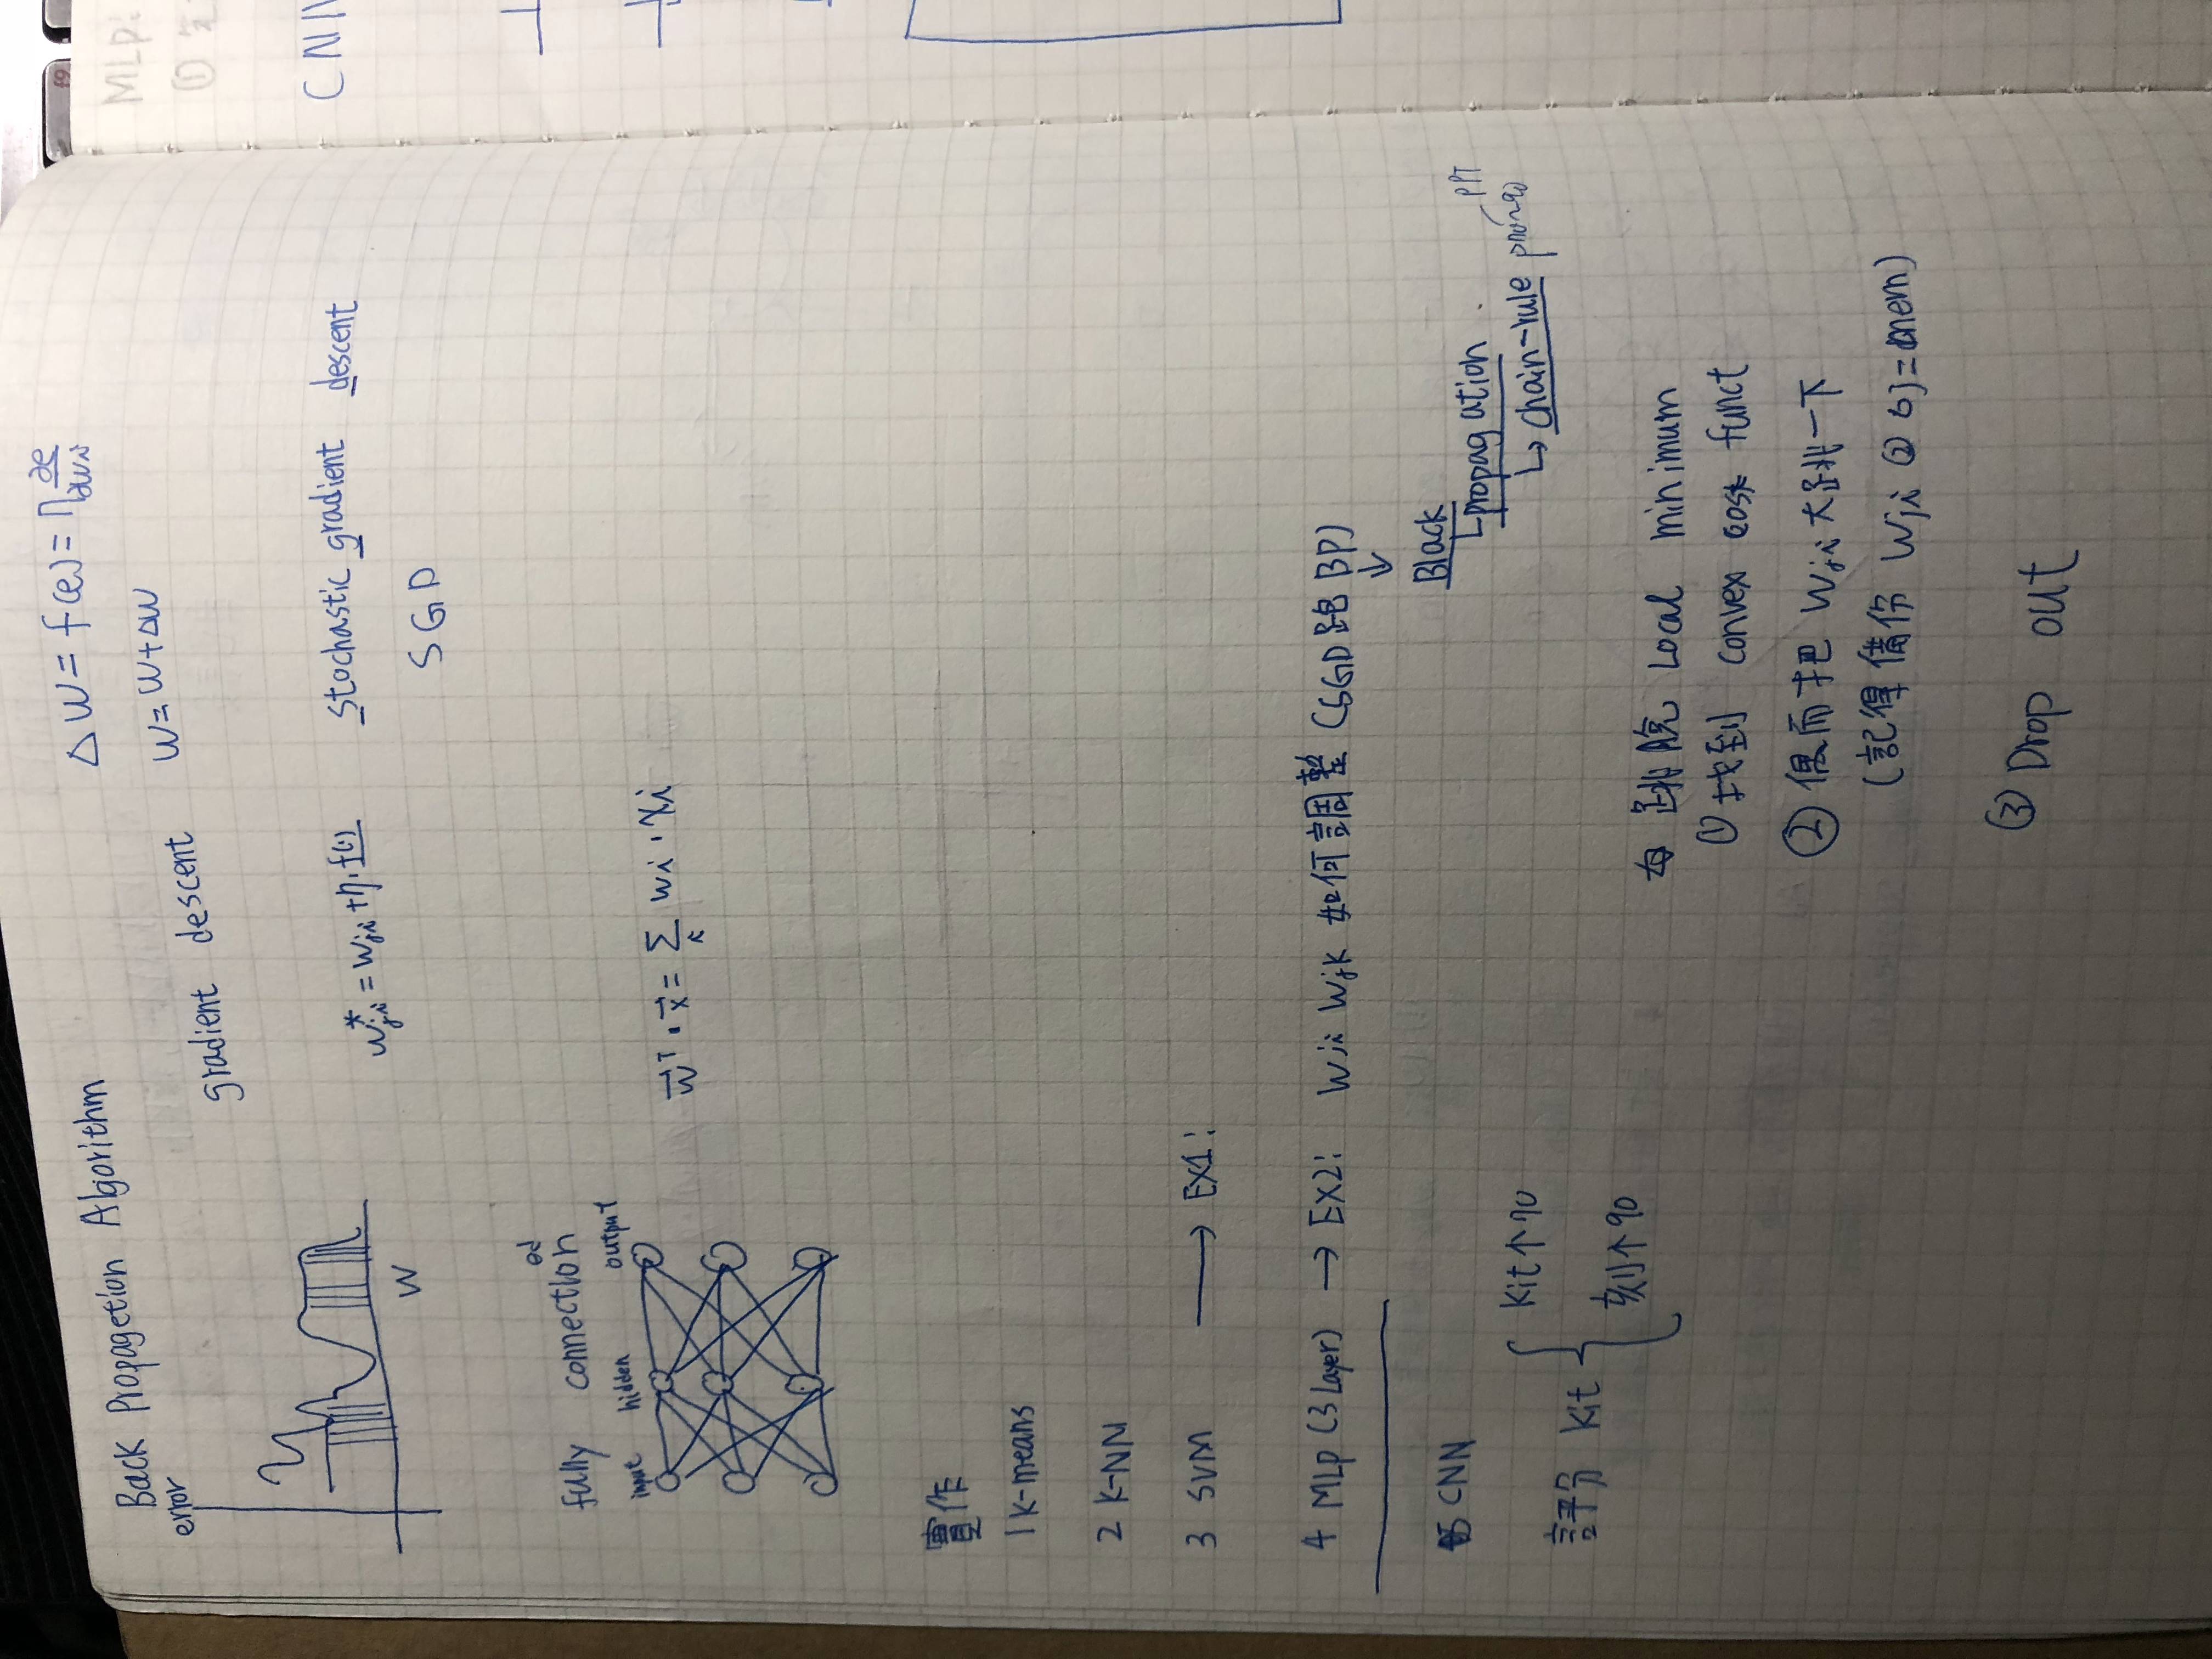 Back Propagetion Algorithm
ΔW = f(e) = η ∂e/∂wi
error
gradient descent
W = W + ΔW
W
w*ji = wji + η · f(·)
stochastic gradient descent
SGD
fully connection
ed
input hidden output
w⃗ᵀ · x⃗ = Σi wi · xi
實作
1 k-means
2 K-NN
3 SVM → EX1:
4 MLP (3 Layer) → EX2: Wji Wjk 如何調整 (SGD跑 BP)
↓
Black
propagation
↳ chain-rule
PPT
5 CNN
評分 kit
Kit ↑ 70
刻 ↑ 90
跳脫 Local minimum
① 找到 convex cost funct
② 偶而把 Wji 大跳一下
(記得備份 Wji mem)
③ Drop out
MLP:
①
CNN
f9